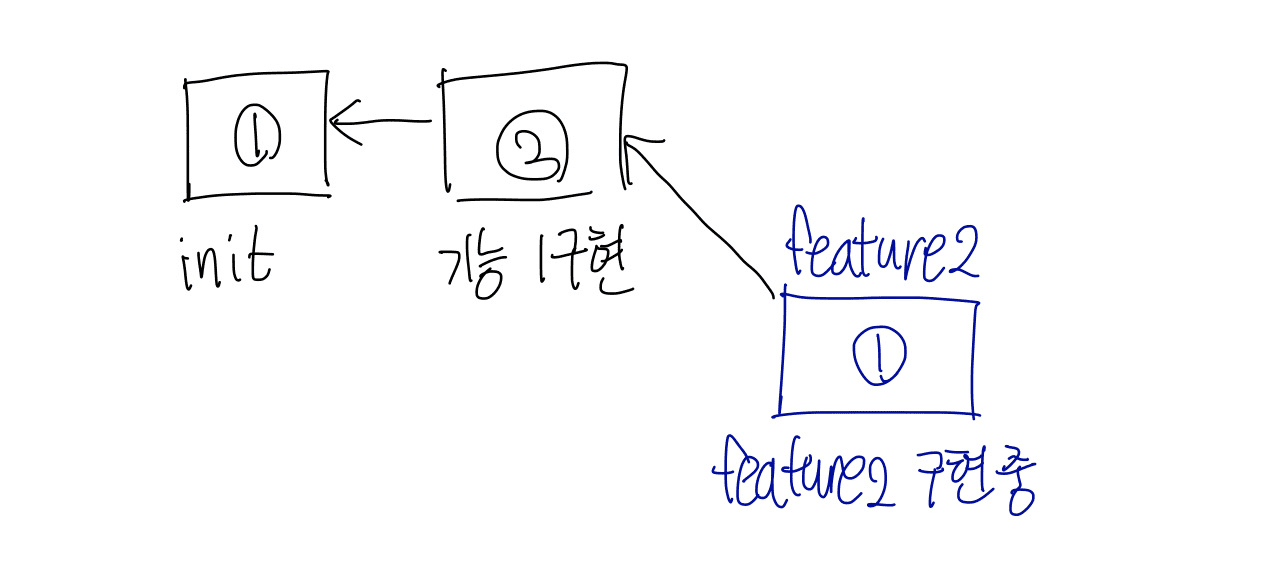 ①
②
init
기능 1구현
feature2
①
feature2 구현중